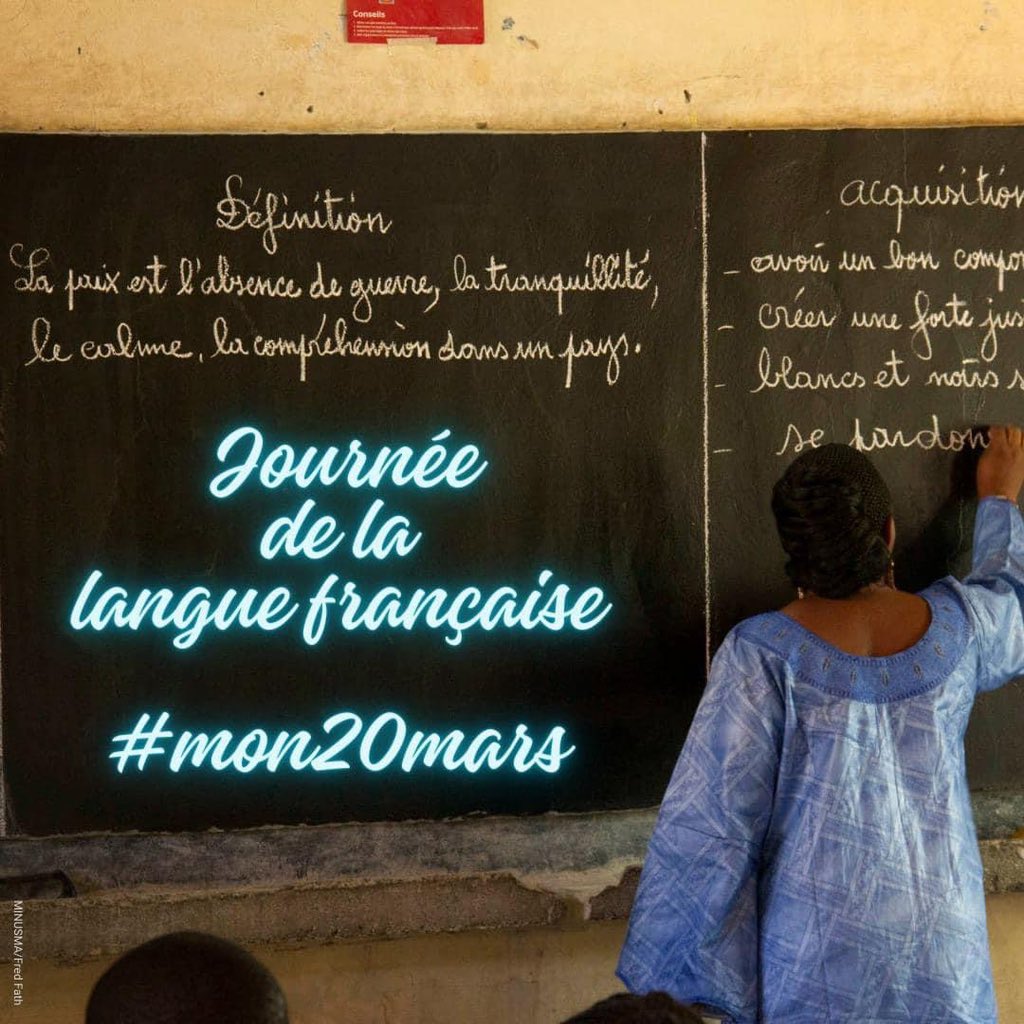 Conseils
Définition
La paix est l'absence de guerre, la tranquillité,
le calme, la compréhension dans un pays.
acquisition
- avoir un bon compor
- créer une forte jus
- blancs et noirs s
- se pardon
Journée
de la
langue française
#mon20mars
MINUSMA/Fred Fath